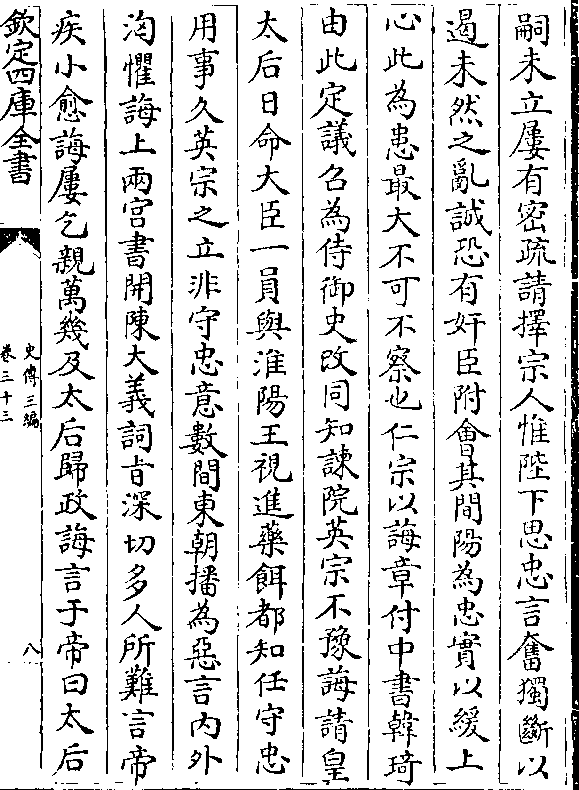 嗣未立屢有密疏請擇宗人惟陛下思忠言奮獨斷以
遏未然之亂誠恐有奸臣附會其間陽為忠實以緩上
心此為患最大不可不察也仁宗以誨章付中書韓琦
由此定議召為侍御史改同知諫院英宗不豫誨請皇
太后日命大臣一員與淮陽王視進藥餌都知任守忠
用事久英宗之立非守忠意數間東朝播為惡言内外
洶懼誨上兩宫書開陳大義詞旨深切多人所難言帝
疾小愈誨屢乞親萬幾及太后歸政誨言于帝曰太后
欽定四庫全書
史傳三編
卷三十三
八